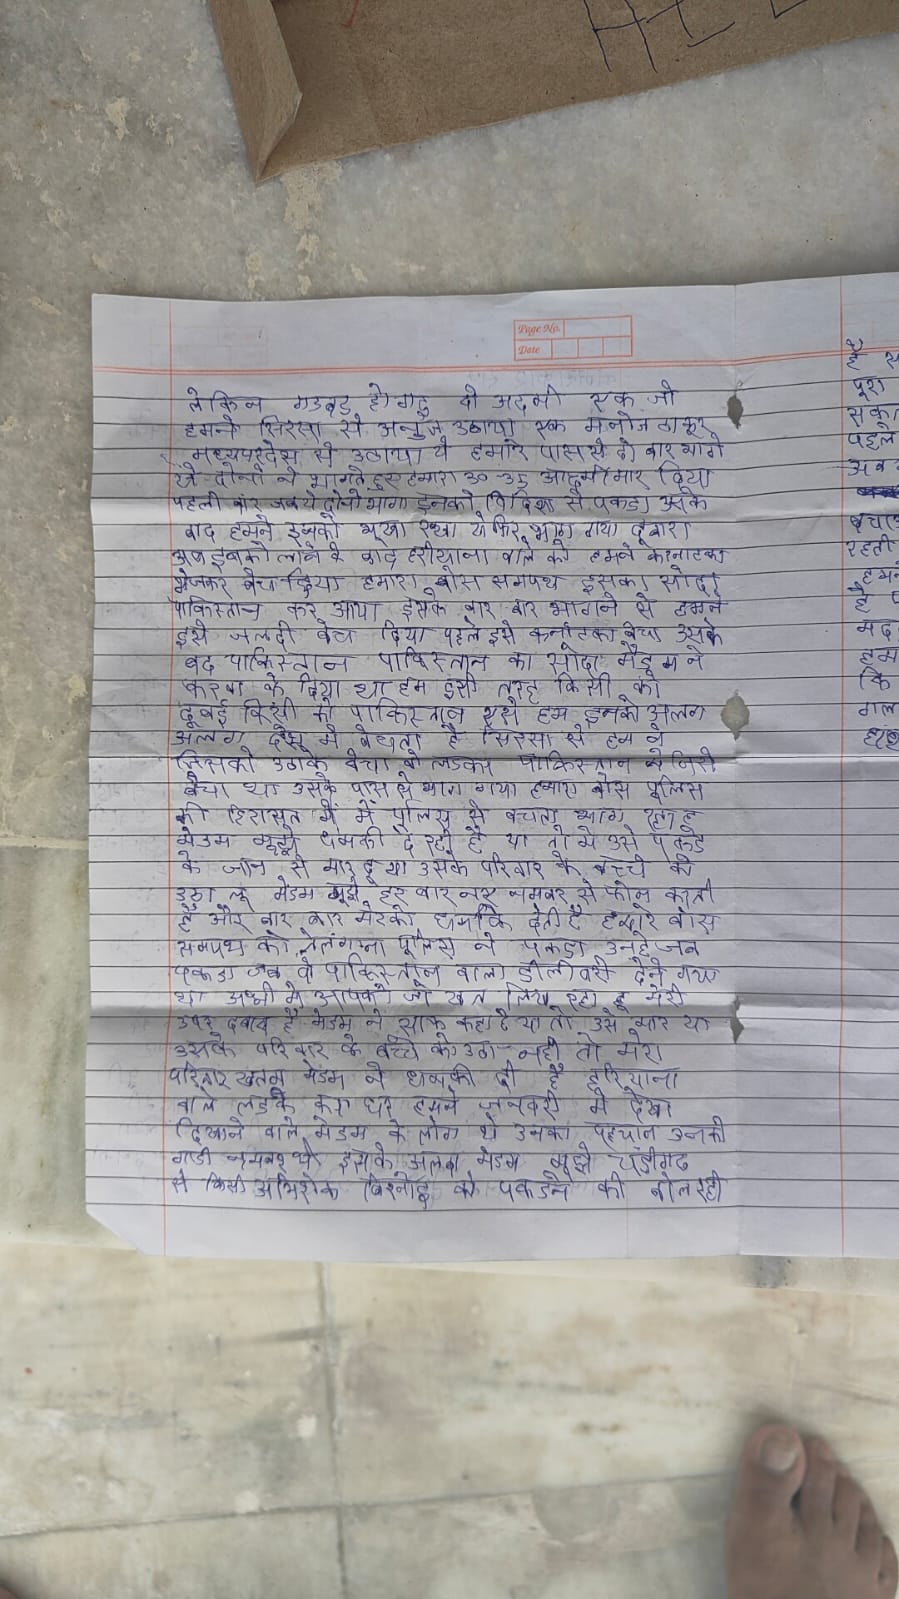 HI
Page No.
Date
लेकिन गडबड हो गई दो आदमी एक जो
हमने सिरसा से अनुज उठाया एक मनोज ठाकुर
मध्यपरदेश से उठाया ये हमारे पास से दो बार भागे
थे दोनो ने भागते हुए हमारा आदमी मार दिया
पहली बार जब ये दोनो भागा इनको विदिशा से पकडा उसके
बाद हमने इनको भूखा रखा ये फिर भाग गया दुबारा
अब इनको लाने के बाद हरीयाना वाले को हमने कानाटका
भेजकर बेच दिया हमारा बोस समपथ इसका सोदा
पाकिस्तान कर आया इसके बार बार भागने से हमने
इसे जलदी बेच दिया पहले इसे कर्नाटका बेचा उसके
बद पाकिस्तान पाकिस्तान का सोदा मेडम ने
करवा के दिया था हम इसी तरह किसी को
दूबई किसी को पाकिस्तान एसे हम इनको अलग
अलग देश में बेचता है सिरसा से हम ने
जिसको उठाके बेचा वो लडका पाकिस्तान मे जिसे
बेचा था उसके पास से भाग गया हमारा बोस पूलिस
की हिरासत में मे पूलिस से बचता भाग रहा हू
मेडम मूझे धमकी दे रही है या तो मे उसे पकड
के जान से मार दू या उसके परिवार के बच्चे को
उठा लू मेडम मूझे हर बार नए नमबर से फोन करती
है और बार बार मेरेको धमकि देती है हमारे बोस
समपथ को तेलंगाना पूलिस ने पकडा उनहे जब
पकडा जब वो पाकिस्तान वाला डीलीवरी देने गया
था अभी मे आपको जो खत लिख रहा हू मेरे
उपर दबाव है मेडम ने साफ कहा है या तो उसे मार या
उसके परिवार के बच्चे को उठा नही तो मेरा
परिवार खतम मेडम ने धमकी दी है हरियाना
वाले लडके का घर हमने जनवरी मे देखा
दिखाने वाले मेडम के लोग थे उनका पहचान उनकी
गाडी नमबर थे इसके अलवा मेडम मूझे चडीगढ
से किसी अभिशेक बिश्नोई को पकडने को बोल रही
है
पूरा
सका
पहले
अब
बचा
रहती
हमने
है
मद
हम
कि
गल